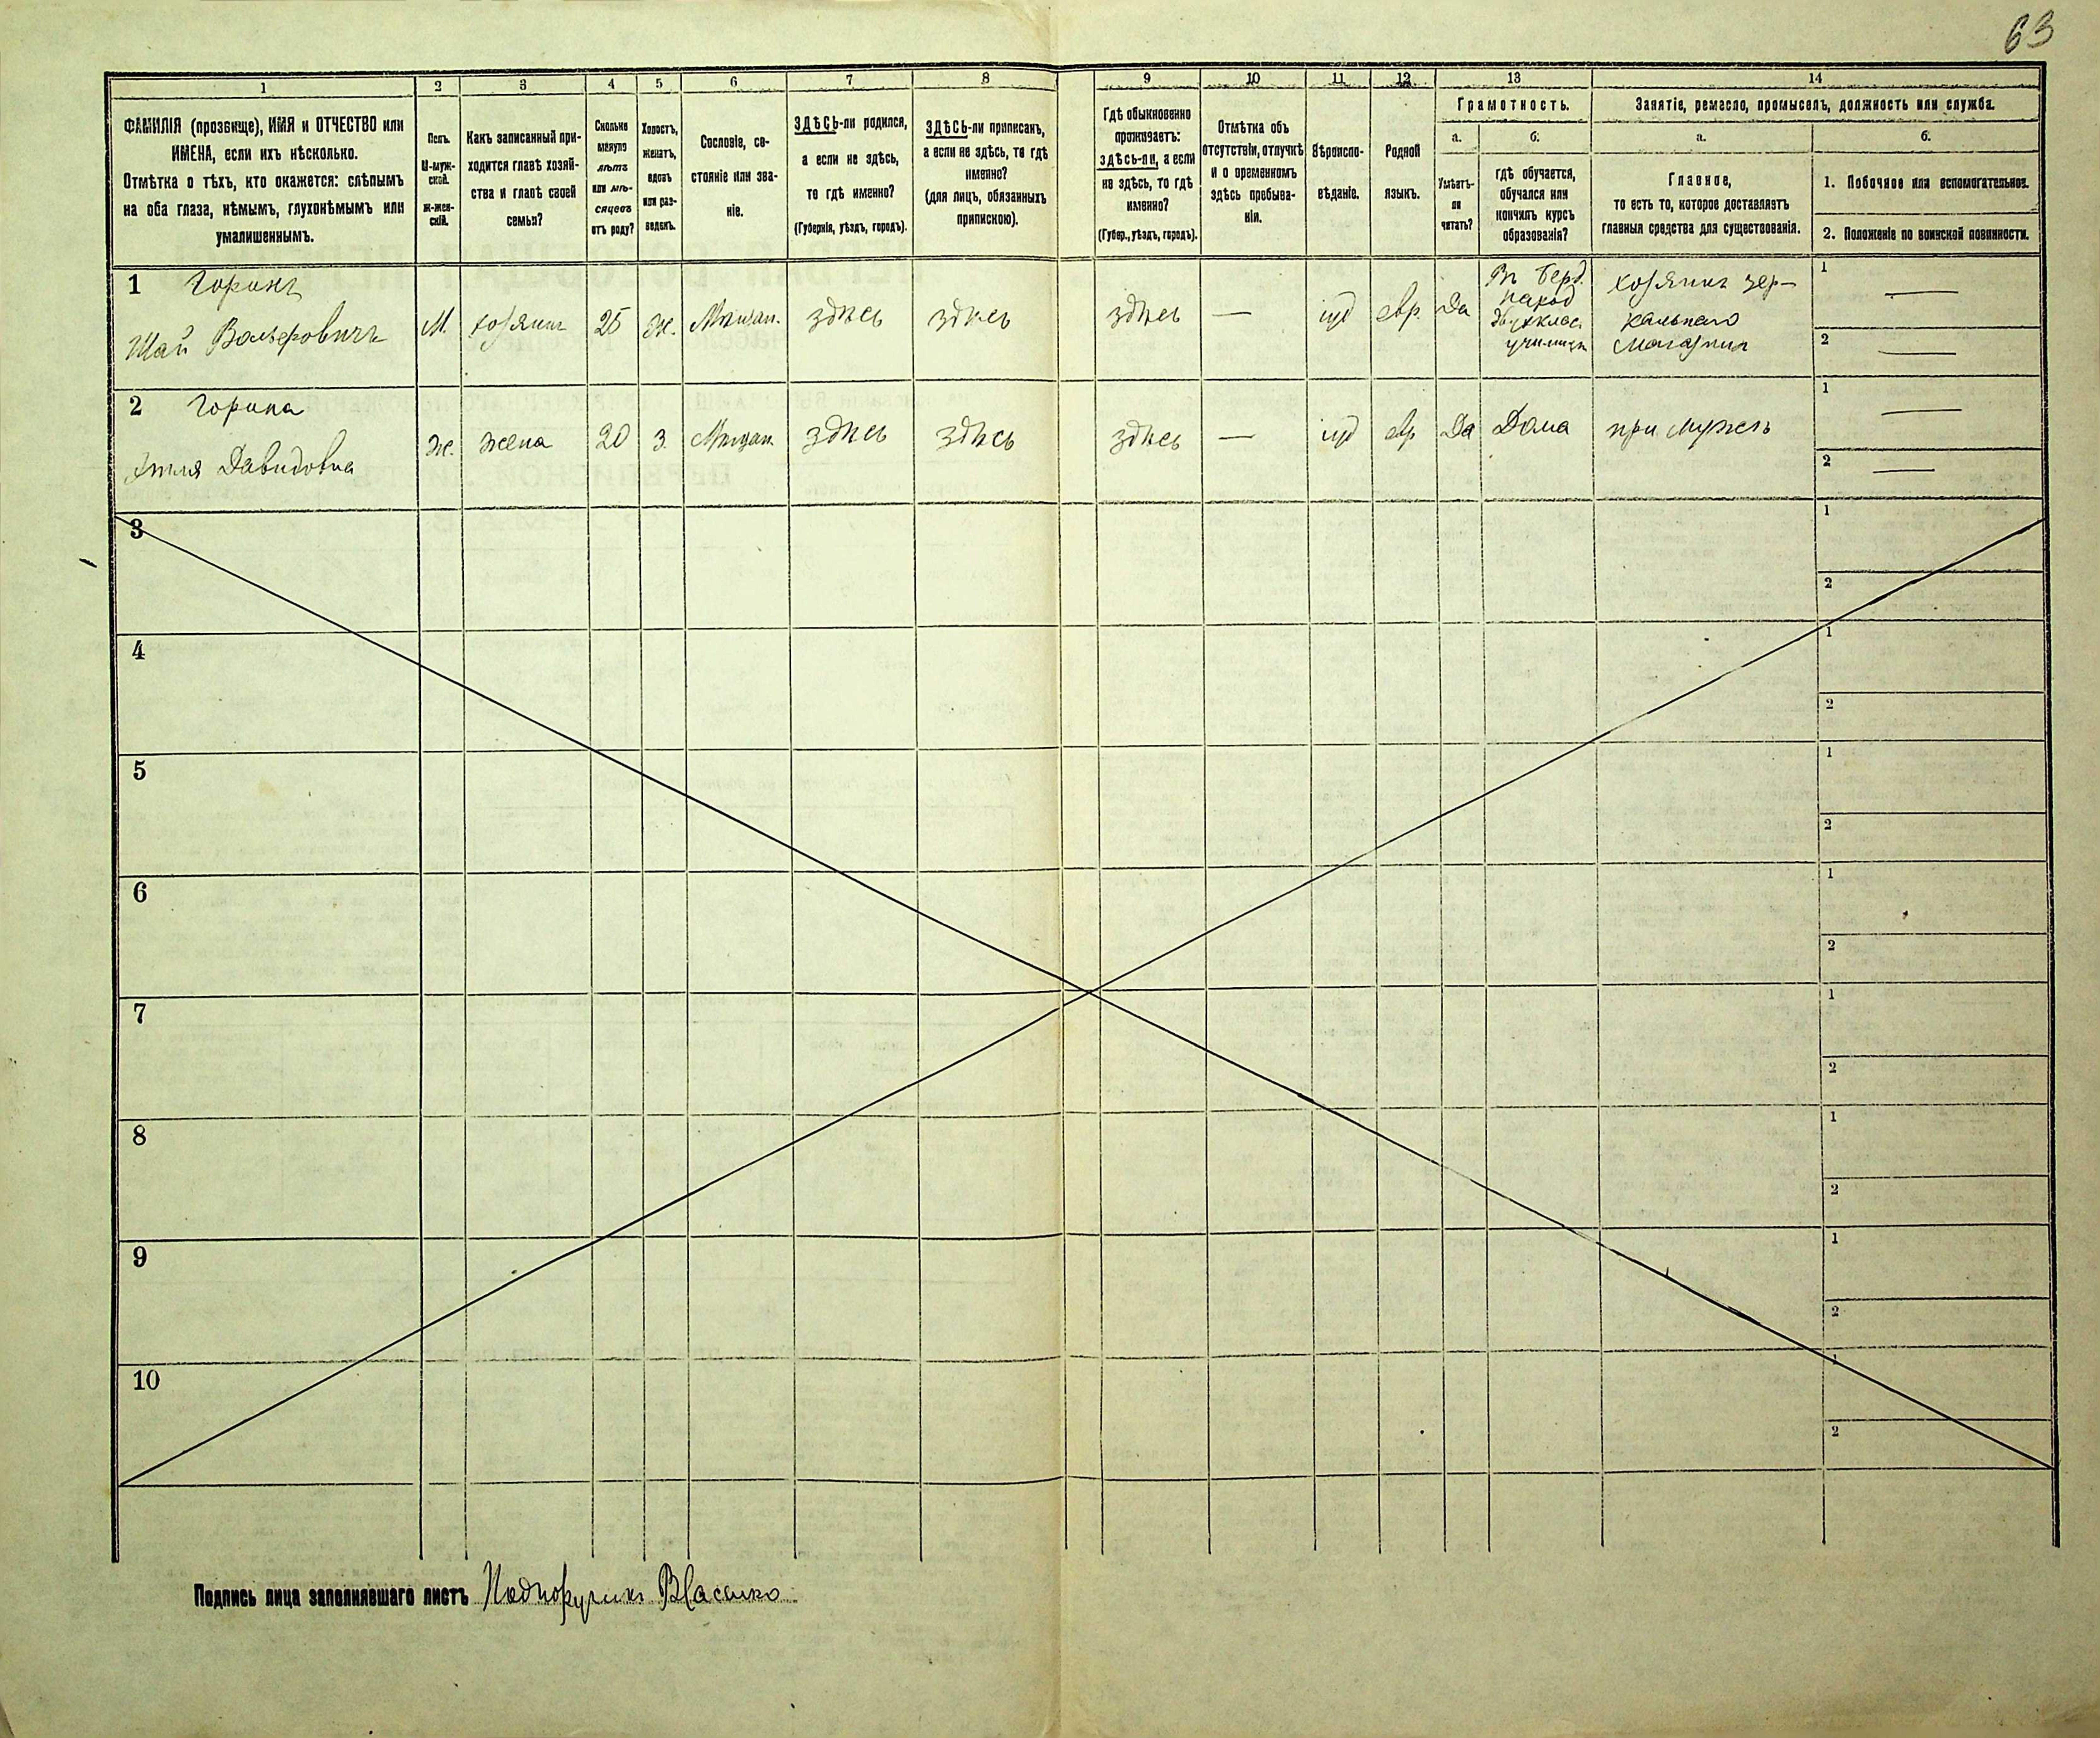 63
1 2 3 4 5 6 7 8 9 10 11 12 13 14
ФАМИЛІЯ (прозвище), ИМЯ и ОТЧЕСТВО или
ИМЕНА, если ихъ нѣсколько.
Отмѣтка о тѣхъ, кто окажется: слѣпымъ
на оба глаза, нѣмымъ, глухонѣмымъ или
умалишеннымъ.
Полъ.
М-муж-
ской.
Ж-жен-
скій.
Какъ записанный при-
ходится главѣ хозяй-
ства и главѣ своей
семьи?
Сколько
минуло
лѣтъ
или мѣ-
сяцевъ
отъ роду?
Холостъ,
женатъ,
вдовъ
или раз-
веденъ.
Сословіе, со-
стояніе или зва-
ніе.
ЗДѢСЬ-ли родился,
а если не здѣсь,
то гдѣ именно?
(Губернія, уѣздъ, городъ).
ЗДѢСЬ-ли приписанъ,
а если не здѣсь, то гдѣ
именно?
(для лицъ, обязанныхъ
припискою).
Гдѣ обыкновенно
проживаетъ:
здѣсь-ли, а если
не здѣсь, то гдѣ
именно?
(Губер., уѣздъ, городъ).
Отмѣтка объ
отсутствіи, отлучкѣ
и о временномъ
здѣсь пребыва-
ніи.
Вѣроиспо-
вѣданіе.
Родной
языкъ.
Грамотность.
а.
б.
Умѣетъ-
ли
читать?
гдѣ обучается,
обучался или
кончилъ курсъ
образованія?
Занятіе, ремесло, промыселъ, должность или служба.
а.
б.
Главное,
то есть то, которое доставляетъ
главныя средства для существованія.
1. Побочное или вспомогательное.
2. Положеніе по воинской повинности.
1 Горинъ
Шай Вольфовичъ
М.
хозяинъ
25
ж.
Мѣщан.
здѣсь
здѣсь
здѣсь
—
іуд
евр.
Да
Въ Берд.
народ
двухклас.
училищѣ
хозяинъ зер-
кальнаго
магазина
1 —
2 —
2 Горина
Давидовна
Ж.
жена
20
з.
Мѣщан.
здѣсь
здѣсь
здѣсь
—
іуд
евр
Да
Дома
при мужѣ
1 —
2 —
3
1
2
4
1
2
5
1
2
6
1
2
7
1
2
8
1
2
9
1
2
10
1
2
Подпись лица заполнявшаго листъ